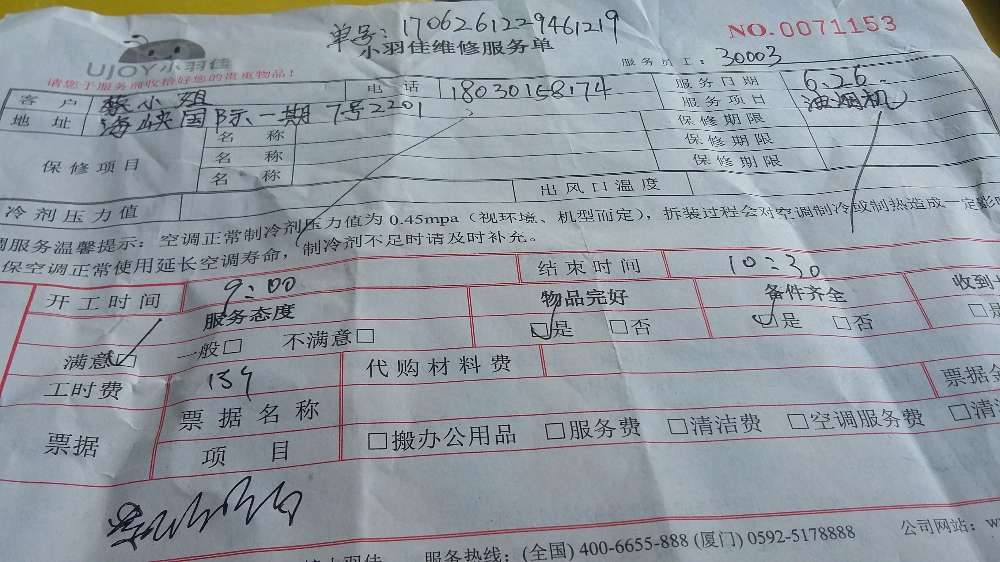 单号:1706261229461219
NO.0071153
UJOY小羽佳
小羽佳维修服务单
服务员工: 30003
请您于服务前收拾好您的贵重物品!
客户 小姐 电话 18030158174 服务日期 6.26
地址 海峡国际一期7号2201 服务项目 油烟机
保修项目 名称 保修期限
名称 保修期限
名称 保修期限
冷剂压力值 出风口温度
调服务温馨提示: 空调正常制冷剂压力值为 0.45mpa (视环境、机型而定), 拆装过程会对空调制冷或制热造成一定影
保空调正常使用延长空调寿命, 制冷剂不足时请及时补充。
开工时间 9:00 结束时间 10:30
服务态度 物品完好 备件齐全 收到
满意□ 一般□ 不满意□ □是 □否 □是 □否 □是
工时费 159 代购材料费
票据 票据名称 票据金
项目 □搬办公用品 □服务费 □清洁费 □空调服务费 □清
服务热线: (全国) 400-6655-888 (厦门) 0592-5178888 公司网站: w